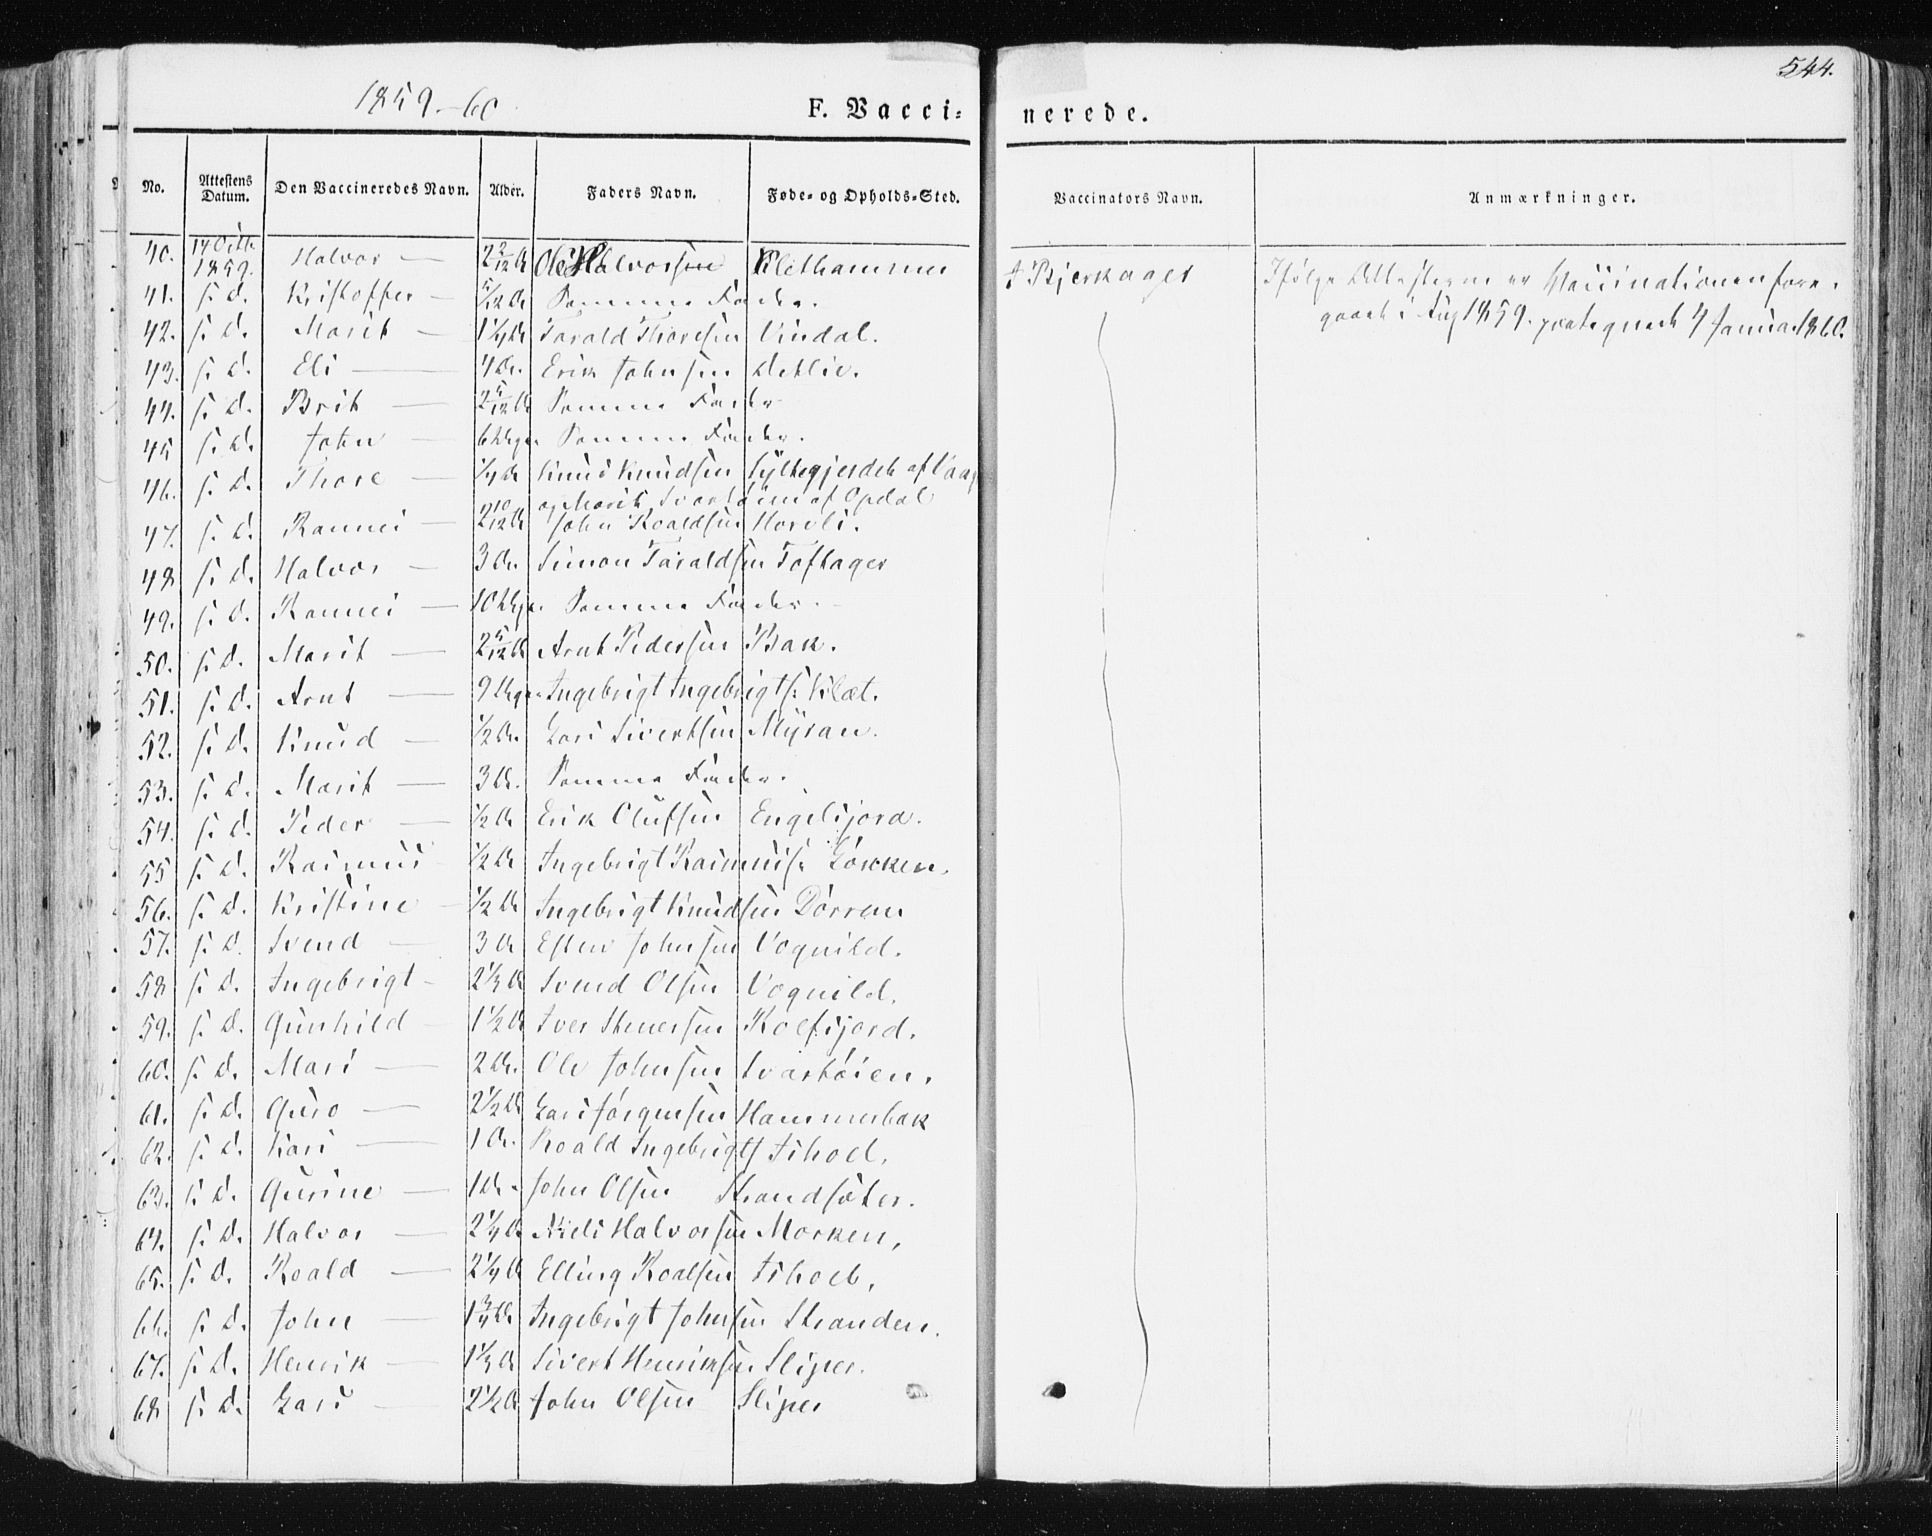 544.
1859.-60
F. Vacci= nerede.
No. Attestens Datum. Den Vaccineredes Navn. Alder. Faders Navn. Føde- og Opholds-Sted. Vaccinators Navn. Anmærkninger.
40. 14 Octb. 1859. Halvor — 2 2/12 Ar Ole Halvorsen Klethammer J Bjerkager Ifølge Attesterne er Vaccinationen fore-
gaaet i Aug 1859. 4 Januar 1860.
41. s. D. Kristoffer — Samme Fader.
42. s. D. Marit — 1 1/4 Ar Tarald Thoresen Vindal.
43. s. D. Eli — 4 Ar. Erik Johnsen Detlie.
44. s. D. Brit — 2 5/12 Ar Samme Fader
45 s. D. John — 6 Uger Samme Fader.
46. s. D. Thore — 1/4 Ar Knud Knudsen Syltegjerdet af Vaag
og Marit Svartøien af Opdal
47. s. D. Rannei — 2 10/12 Ar John Roaldsen Horvli.
48 s. D. Halvor — 3 Ar. Simon Taraldsen Toftager
49. s. D. Rannei — 10 Uger Samme Fader.
50. s. D. Marit — 2 5/12 Ar Arnt Pedersen Bak.
51. s. D. Arnt — 9 Uger Ingebrigt Ingebrigts: Klæt.
52. s. D. Knud — 1/2 Ar. Lars Sivertsen Myran.
53. s. D. Marit — 3 Ar. Samme Fader.
54. s. D. Peder — 1/2 Ar Erik Olufsen Engelsjord.
55 s. D. Rasmus — 1/2 Ar Ingebrigt Rasmuss:
56. s. D. Kristine — 1/2 Ar Ingebrigt Knudsen Dørrem
57. s. D. Svend — 3 Ar Esten Johnsen Vognild.
58 s. D. Ingebrigt — 2 1/3 Ar Svend Olsen Vognild.
59. s. D. Gunhild — 1 1/2 Ar Iver Stenersen Roefsjord.
60. s. D. Mari — 2 Ar. Ole Johnsen Svartøien.
61. s. D. Guro — 2 1/2 Ar Lars Jørgensen Hammerbak
62. s. D. Kari — 1 Ar. Roald Ingebrigts Ishoel.
63. s. D. Gurine — 1 Ar. John Olsen Strandsæter.
64. s. D. Halvor — 2 1/4 Ar Niels Halvorsen Morken,
65. s. D. Roald — 2 1/4 Ar Elling Roalsen Ishoel,
66. s. D. John — 1 3/4 Ar Ingebrigt Johnsen Stranden.
67. s. D. Henrik — 1 1/3 Ar Sivert Henriksen Sliper.
68 s. D. Lars — 2 1/2 Ar John Olsen Sliper